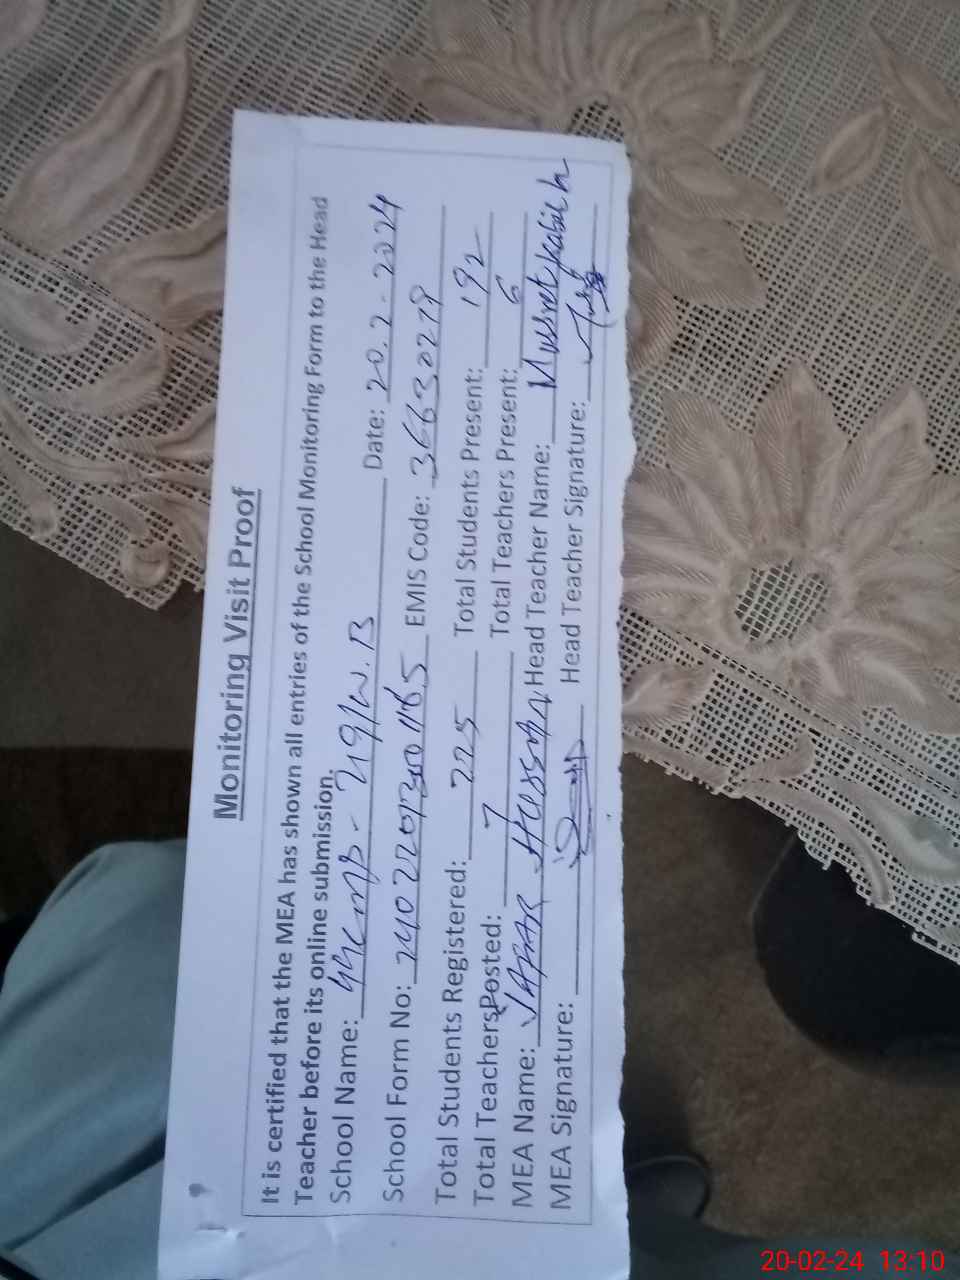 Monitoring Visit Proof
It is certified that the MEA has shown all entries of the School Monitoring Form to the Head
Teacher before its online submission.
School Name: Date: 20.2-2024
School Form No: EMIS Code: 36630219
Total Students Registered: 225 Total Students Present: 192
Total Teachers Posted: 7 Total Teachers Present: 6
MEA Name: JABAR Hussain Head Teacher Name: Mussrat
MEA Signature: Head Teacher Signature:
20-02-24 13:10